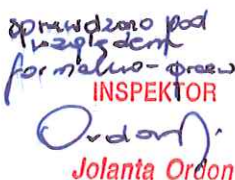 sprawdzono pod
względem
formalno-praw
INSPEKTOR
Ordon J.
Jolanta Ordon